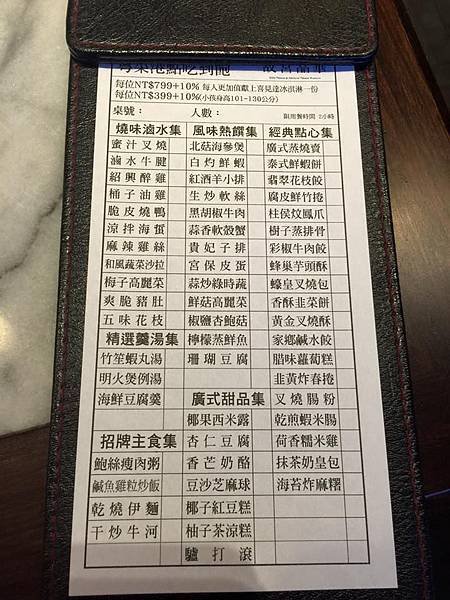 粵菜港點吃到飽 故宮晶華
每位NT$799+10% 每人更加值獻上喜見達冰淇淋一份
每位NT$399+10%(小孩身高101-130公分)
桌號： 人數： 限用餐時間 2小時
燒味滷水集 風味熱饌集 經典點心集
蜜汁叉燒 北菇海參煲 廣式蒸燒賣
滷水牛腱 白灼鮮蝦 泰式鮮蝦餅
紹興醉雞 紅酒羊小排 翡翠花枝餃
桶子油雞 生炒軟絲 腐皮鮮竹捲
脆皮燒鴨 黑胡椒牛肉 柱侯炆鳳爪
涼拌海蜇 蒜香軟殼蟹 樹子蒸排骨
麻辣雞絲 貴妃子排 彩椒牛肉餃
和風蔬菜沙拉 宮保皮蛋 蜂巢芋頭酥
梅子高麗菜 蒜炒綠時蔬 蠔皇叉燒包
爽脆豬肚 鮮菇高麗菜 香酥韭菜餅
五味花枝 椒鹽杏鮑菇 黃金叉燒酥
精選羹湯集 檸檬蒸鮮魚 家鄉鹹水餃
竹笙蝦丸湯 珊瑚豆腐 腊味蘿蔔糕
明火煲例湯 韭黃炸春捲
海鮮豆腐羹 廣式甜品集 叉燒腸粉
椰果西米露 乾煎蝦米腸
招牌主食集 杏仁豆腐 荷香糯米雞
鮑絲瘦肉粥 香芒奶酪 抹茶奶皇包
鹹魚雞粒炒飯 豆沙芝麻球 海苔炸麻糬
乾燒伊麵 椰子紅豆糕
干炒牛河 柚子茶涼糕
驢打滾